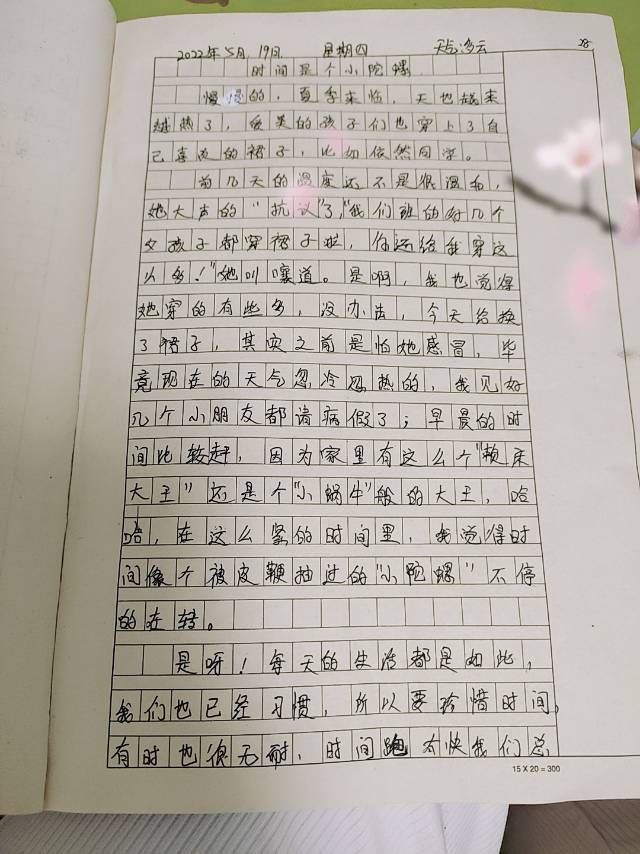 28
2022年5月19日 星期四 天气:多云
时间是个小陀螺
慢慢的,夏季来临,天也越来
越热了,爱美的孩子们也穿上了自
己喜欢的裙子,比如依然同学。
前几天的温度还不是很温和,
她大声的“抗议”了,“我们班的好几个
女孩子都穿裙子啦,你还给我穿这
么多!”她叫嚷道。是啊,我也觉得
她穿的有些多,没办法,今天给换
了裙子,其实之前是怕她感冒,毕
竟现在的天气忽冷忽热的,我见好
几个小朋友都请病假了;早晨的时
间比较赶,因为家里有这么个“赖床
大王”还是个“小蜗牛”般的大王,哈
哈,在这么紧的时间里,我觉得时
间像个被皮鞭抽过的“小陀螺”不停
的在转。
是呀!每天的生活都是如此,
我们也已经习惯,所以要珍惜时间,
有时也很无耐,时间跑太快我们总
15 X 20 = 300